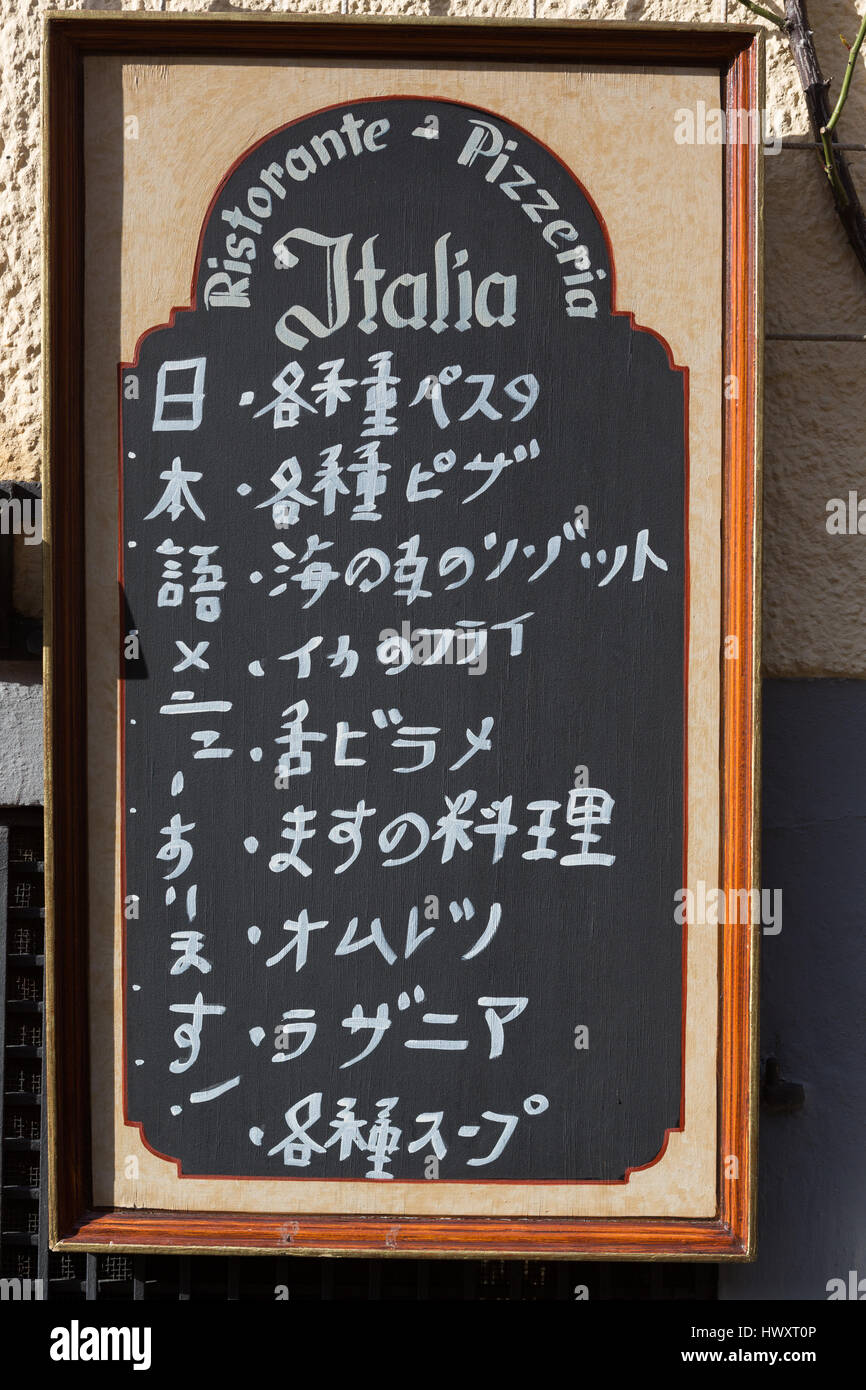 Ristorante - Pizzeria
Italia
日本語メニューあります!
・各種パスタ
・各種ピザ
・海の幸のリゾット
・イカのフライ
・舌ビラメ
・ますの料理
・オムレツ
・ラザニア
・各種スープ
alamy
Image ID: HWXT0P
www.alamy.com